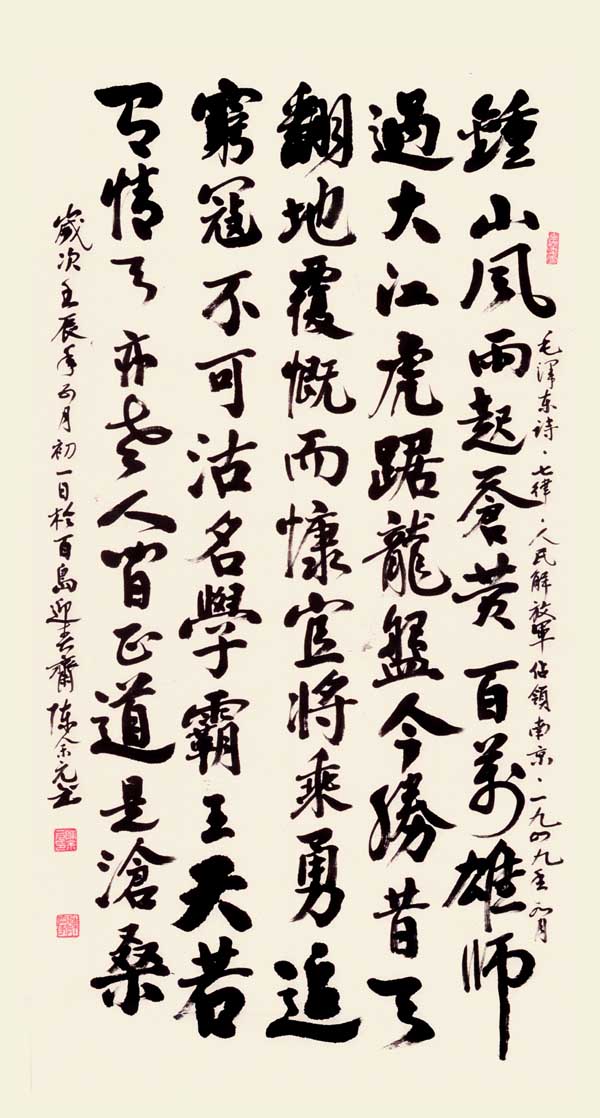 毛澤东诗·七律·人民解放軍佔領南京·一九四九年四月
鍾山風雨起蒼黄百萬雄師
過大江虎踞龍盤今勝昔天
翻地覆慨而慷宜將乘勇追
窮寇不可沽名學霸王天若
有情天亦老人间正道是滄桑
歲次壬辰年正月初一日於百島迎春齋陈余元书